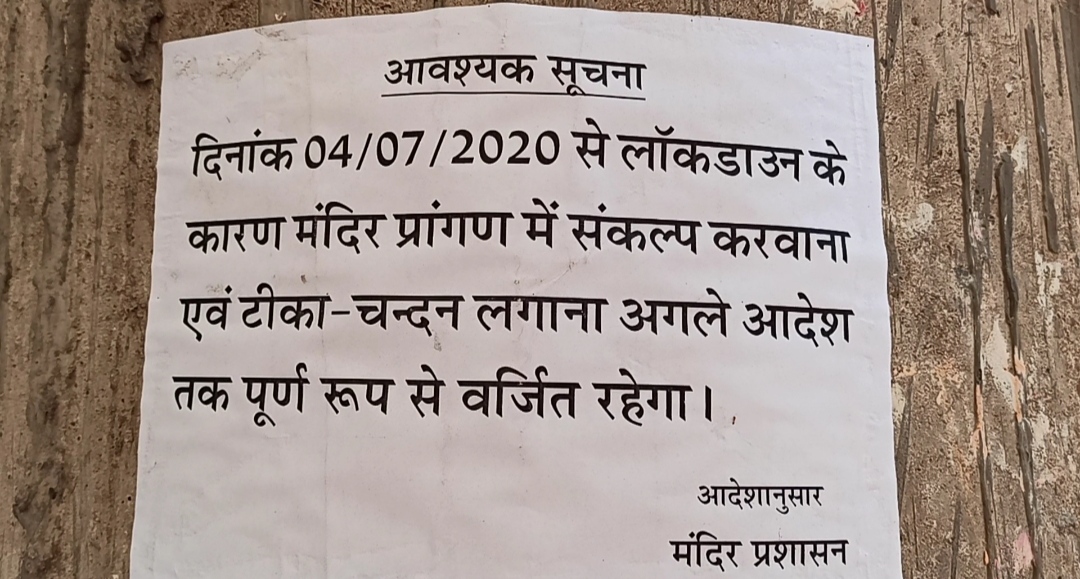 आवश्यक सूचना
दिनांक 04/07/2020 से लॉकडाउन के
कारण मंदिर प्रांगण में संकल्प करवाना
एवं टीका-चन्दन लगाना अगले आदेश
तक पूर्ण रूप से वर्जित रहेगा।
आदेशानुसार
मंदिर प्रशासन